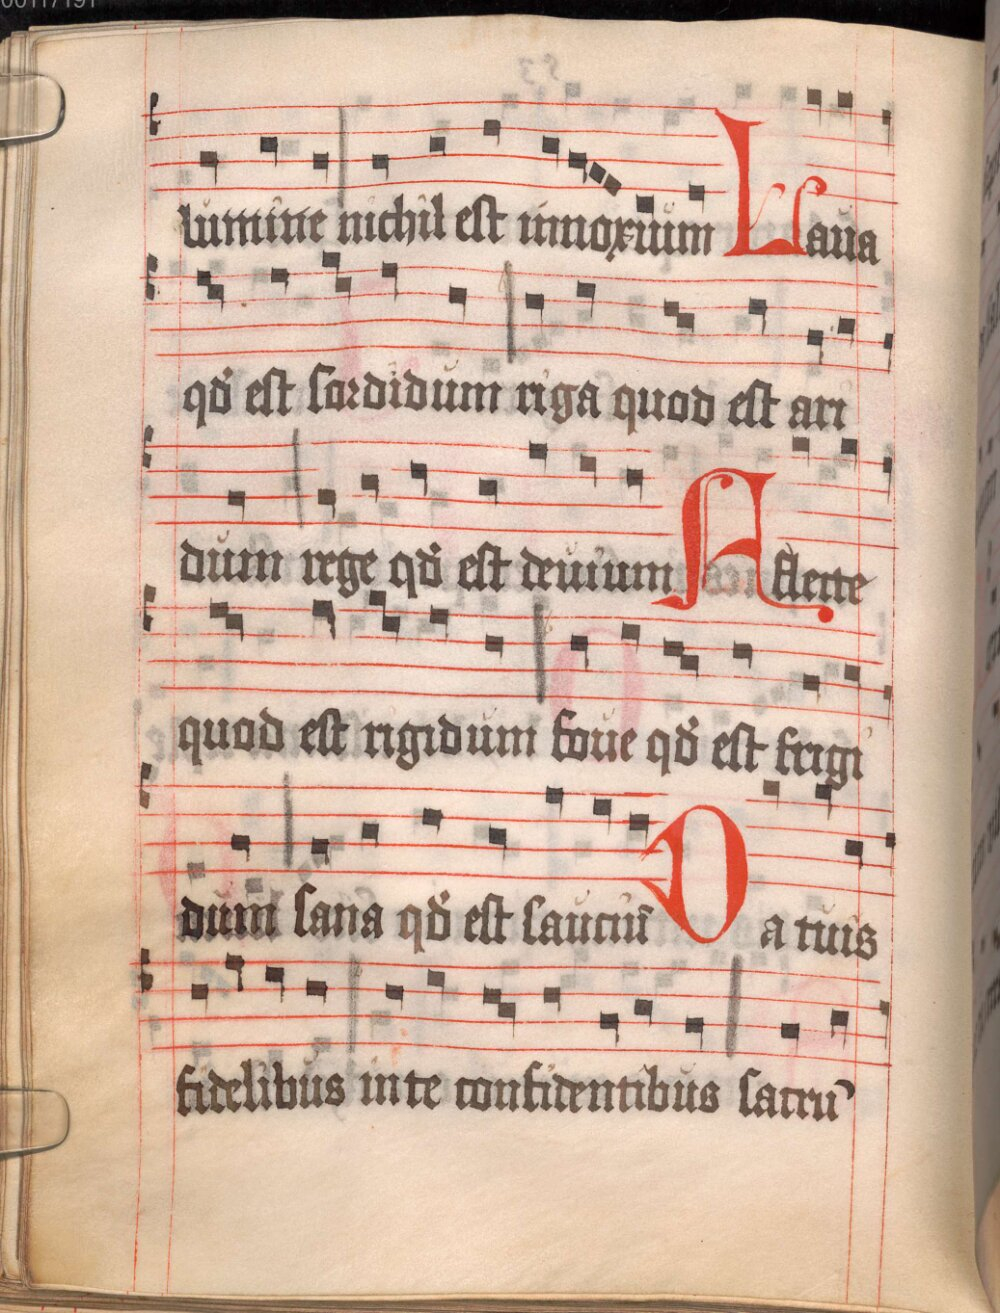 lumine nichil est innoxium Laua
qđ est sordidum riga quod est ari
dum rege qđ est deuium Flecte
quod est rigidum foue qđ est frigi
dum sana qđ est sauciũ Da tuis
fidelibus in te confidentibus sacrũ